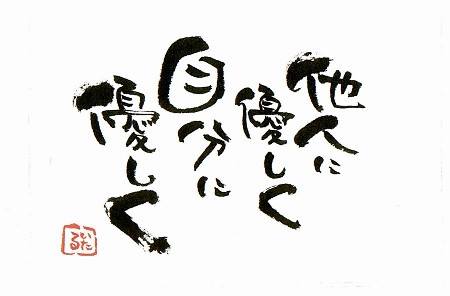 他人に
優しく
自分に
優しく
いたる